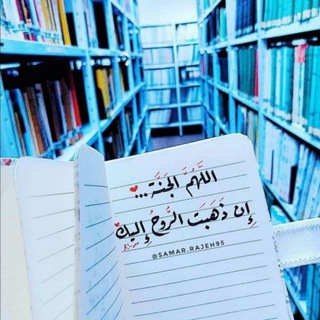 اللَّهُمَّ الجَنَّة...
إِن ذَهَبَت الرّوحُ إِليكَ
@SAMAR.RAJEH95